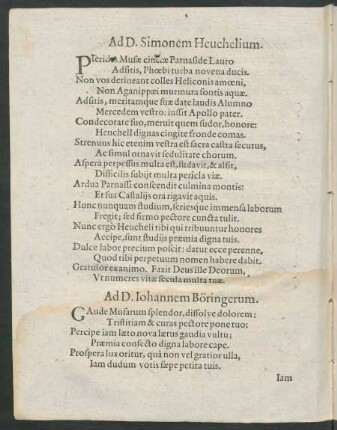 Ad D. Simonem Heuchelium.
PIerides Musæ cinctæ Parnaside Lauro
Adsitis, Phœbi turba novena ducis.
Non vos detineant colles Heliconis amœni,
Non Aganippæi murmura fontis aquæ.
Adsitis, meritamque suæ date laudis Alumno
Mercedem vestro: iussit Apollo pater.
Condecorate suo, meruit quem sudor, honore:
Henchelî dignas cingite fronde comas.
Strenuus hic etenim vestra est sacra castra secutus,
Ac simul ornavit sedulitate chorum.
Aspera perpessus multa est, sudavit, & alsit,
Difficilis subijt multa pericla viæ.
Ardua Parnassi conscendit culmina montis:
Et sua Castalijs ora rigavit aquis.
Hunc nunquam studium, seriesque immensa laborum
Fregit; sed firmo pectore cuncta tulit.
Nunc ergò Heucheli tibi qui tribuuntur honores
Accipe, sunt studijs præmia digna tuis.
Dulce labor precium poscit: datur ecce perenne,
Quod tibi perpetuum nomen habere dabit.
Gratulor ex animo. Faxit Deus ille Deorum,
Vt numeres vitæ secula multa tuæ.
Ad D. Iohannem Böringerum.
GAude Musarum splendor, dissolve dolorem;
Tristitiam & curas pectore pone tuo:
Percipe iam læto nova lætus gaudia vultu;
Præmia confecto digna labore cape.
Prospera lux oritur, quâ non vel gratior ulla,
Iam dudum votis sæpe petita tuis.
Iam